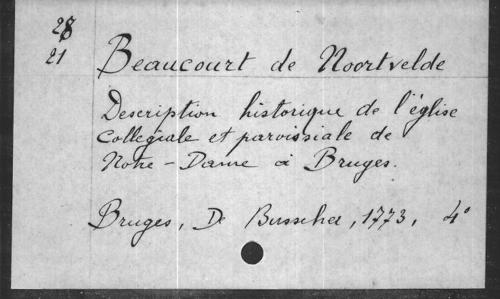 28
21
Beaucourt de Noortvelde
Description historique de l'église
collégiale et paroissiale de
Notre-Dame à Bruges.
Bruges, De Busscher, 1773, 4°